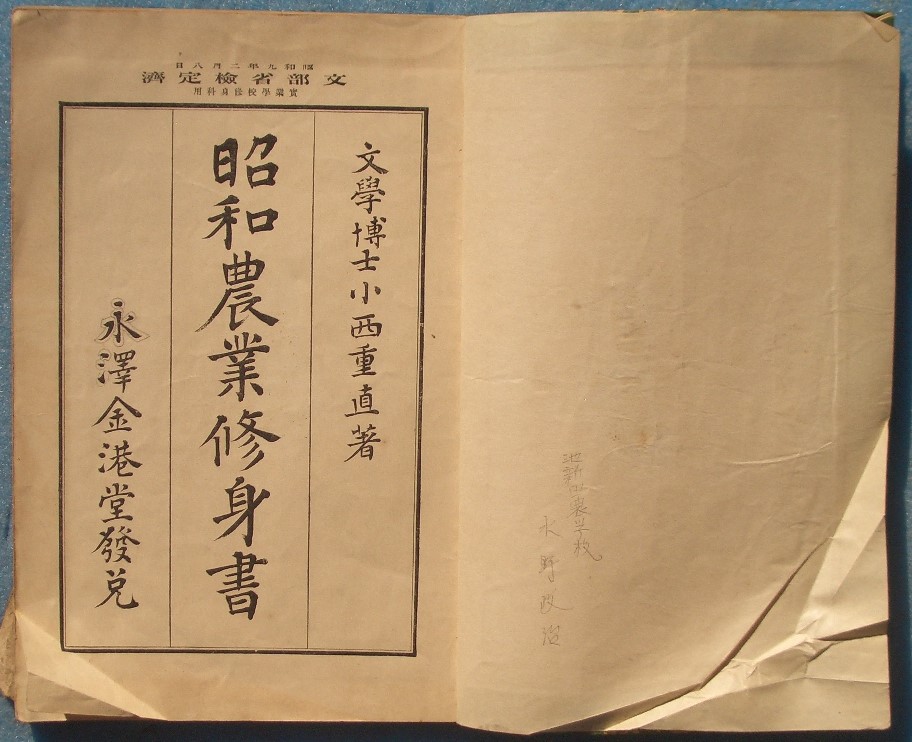 池新田農学校
水野政治
昭和九年二月八日
文部省檢定濟
實業學校修身科用
文學博士小西重直著
昭和農業修身書
永澤金港堂發兌